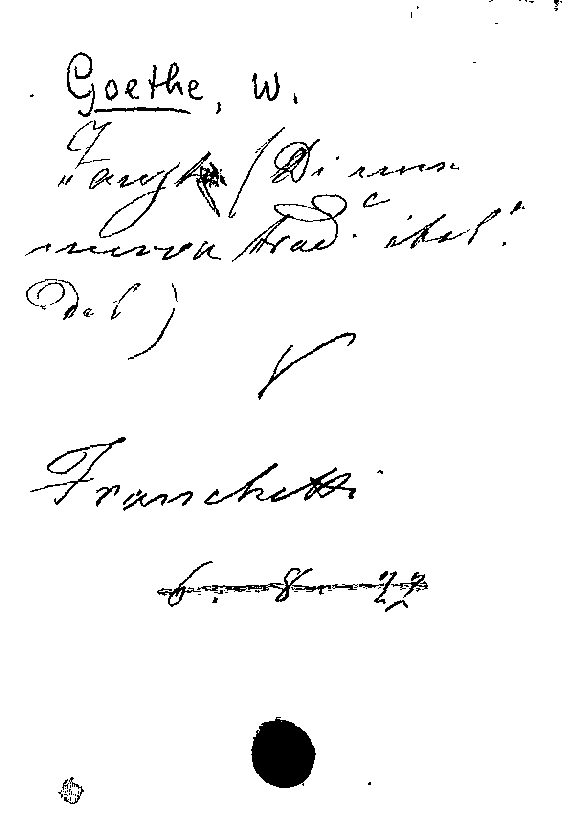 Goethe, W.
(Di una
nuova trad. ital.
Del)
Franchetti
6. 8. 27